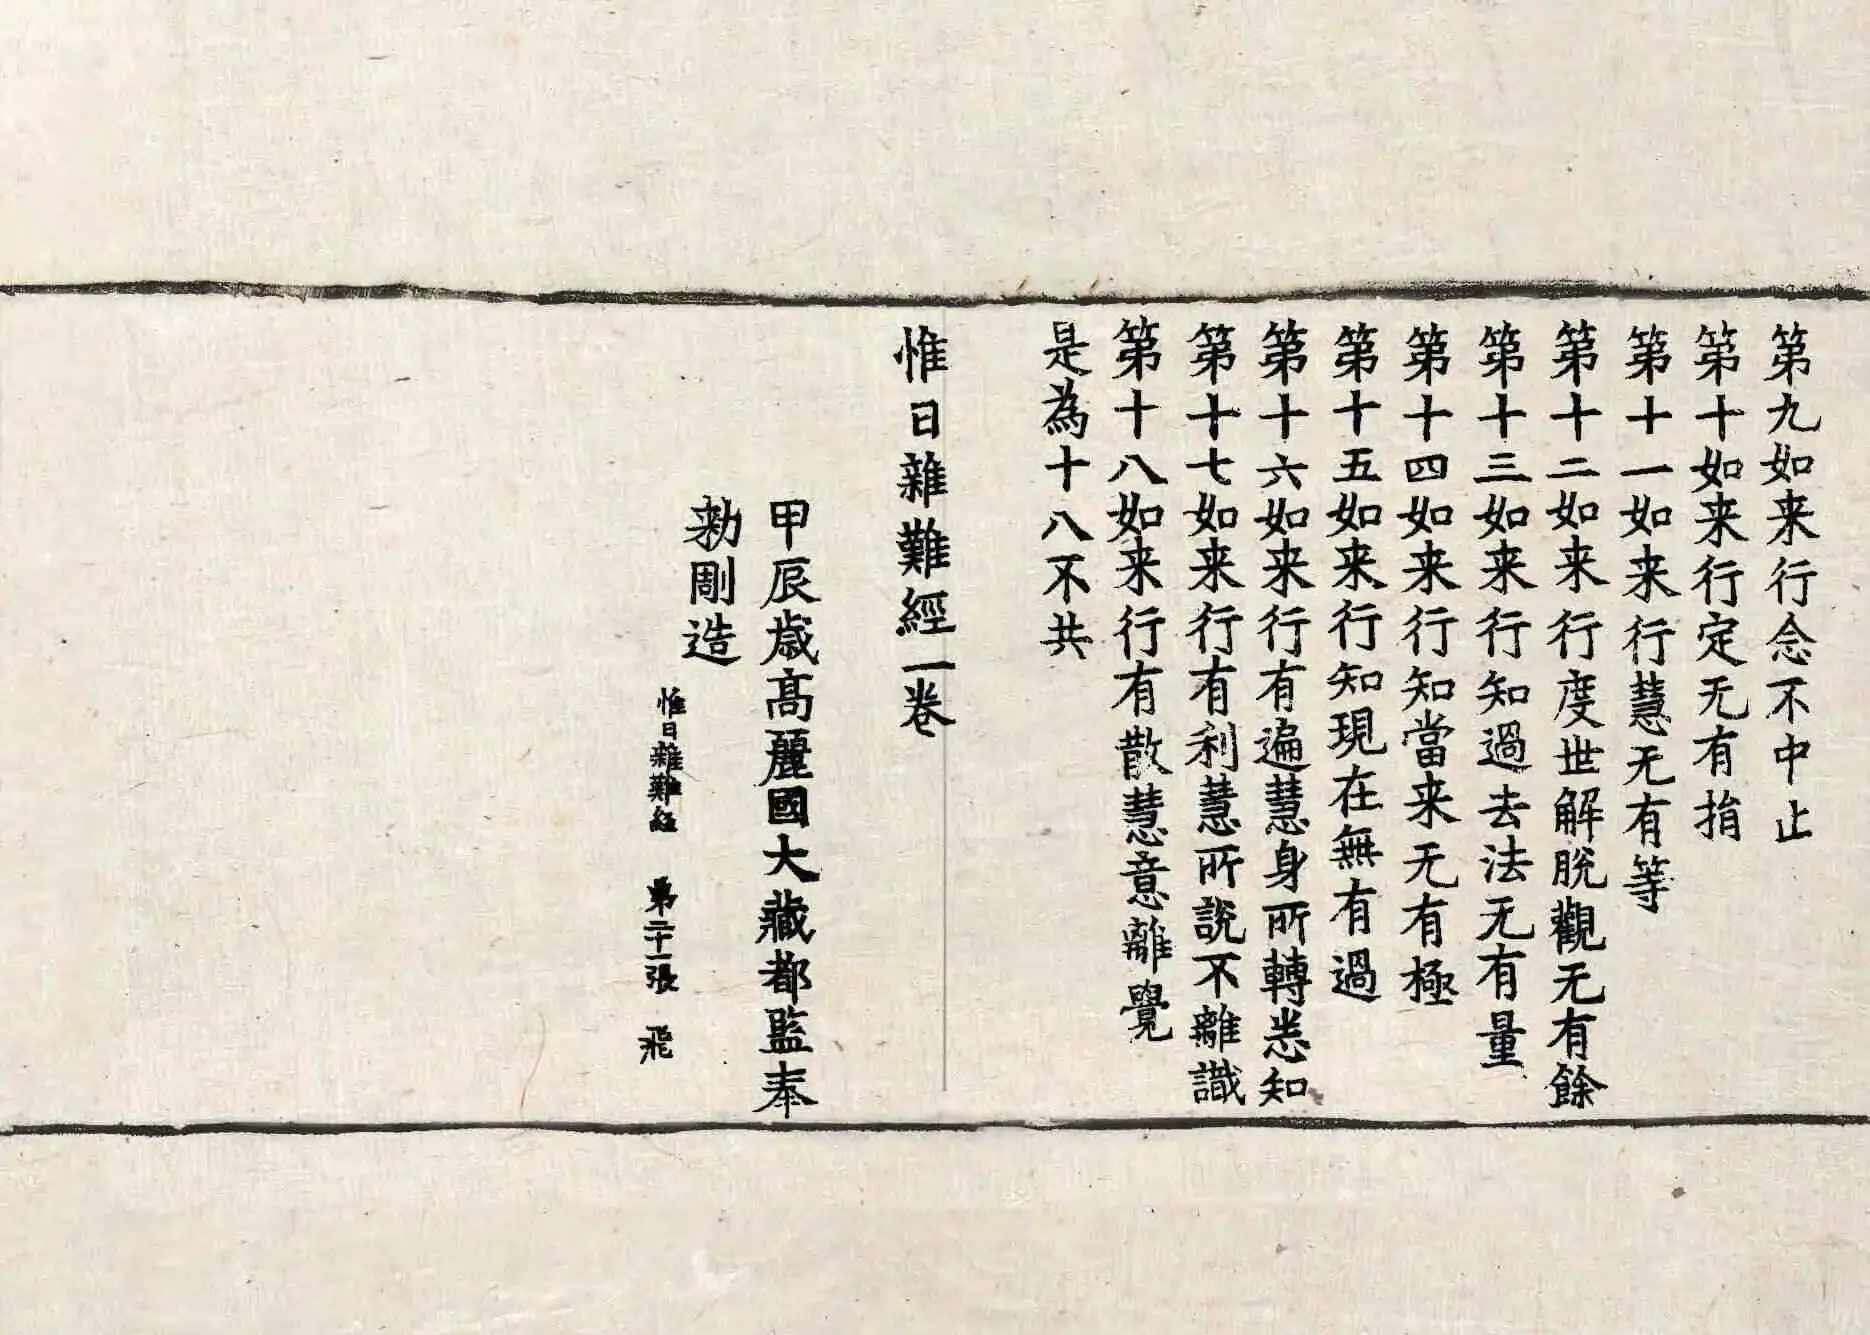 第九如来行念不中止
第十如来行定无有指
第十一如来行慧无有等
第十二如来行度世解脫觀无有餘
第十三如来行知過去法无有量
第十四如来行知當来无有極
第十五如来行知現在無有過
第十六如来行有遍慧身所轉悉知
第十七如来行有利慧所說不離識
第十八如来行有散慧意離覺
是為十八不共
惟日雜難經一卷
甲辰歲髙麗國大藏都監奉
勑彫造
惟日雜難経 第二十一張 飛